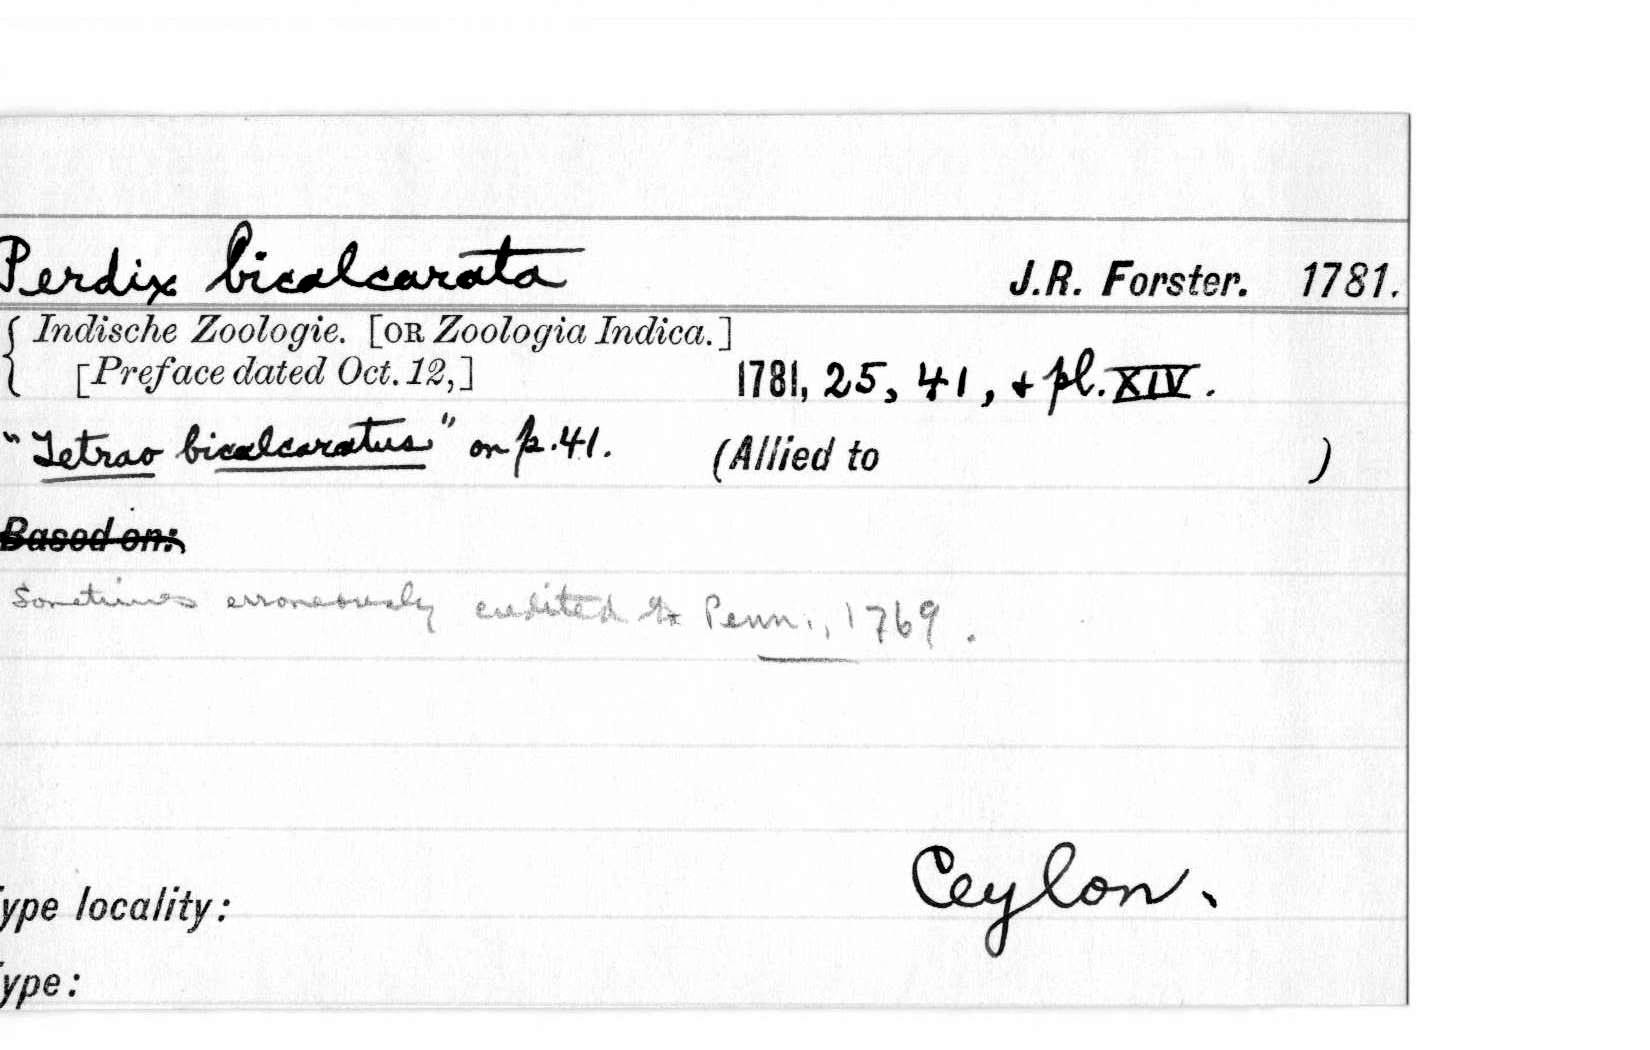 Perdix bicalcarata J.R. Forster. 1781.
{ Indische Zoologie. [OR Zoologia Indica.]
[Preface dated Oct. 12,] 1781, 25, 41, + pl. XIV.
"Tetrao bicalcaratus" on p. 41. (Allied to )
Based on:
Sometimes erroneously credited to Penn., 1769.
Ceylon.
ype locality:
ype: